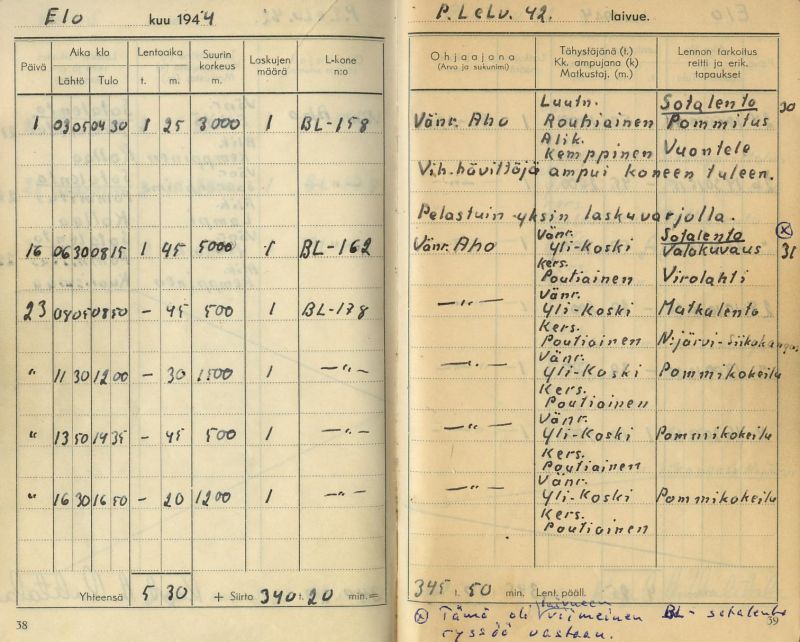 Elo kuu 1944
Päivä Aika klo Lähtö Tulo Lentoaika t. m. Suurin korkeus m. Laskujen määrä L-kone n:o
1 0305 0430 1 25 3000 1 BL-158
16 0630 0815 1 45 5000 1 BL-162
23 0805 0850 – 45 500 1 BL-178
" 1130 1200 – 30 1500 1 —"—
" 1350 1435 – 45 500 1 —"—
" 1630 1650 – 20 1200 1 —"—
Yhteensä 5 30 + Siirto 340 t. 20 min. =
38
P. Lelv. 42. laivue.
Ohjaajana (Arvo ja sukunimi) Tähystäjänä (t.) Kk. ampujana (k) Matkustaj. (m.) Lennon tarkoitus reitti ja erik. tapaukset
Luutn. Sotalento 30
Vänr. Aho Rouhiainen Pommitus
Alik.
Kemppinen Vuontele
Vih. hävittäjä ampui koneen tuleen.
Pelastuin yksin laskuvarjolla.
Vänr. Sotalento x
Vänr. Aho Yli-Koski Valokuvaus 31
Kers.
Poutiainen Virolahti
Vänr.
—"— Yli-Koski Matkalento
Kers.
Poutiainen N:järvi-Siikakangas
Vänr.
—"— Yli-Koski Pommikokeilu
Kers.
Poutiainen
Vänr.
—"— Yli-Koski Pommikokeilu
Kers.
Poutiainen
Vänr.
—"— Yli-Koski Pommikokeilu
Kers.
Poutiainen
345 t. 50 min. Lent. pääll.
x Tämä oli laivueen viimeinen BL- sotalento
ryssää vastaan.
39